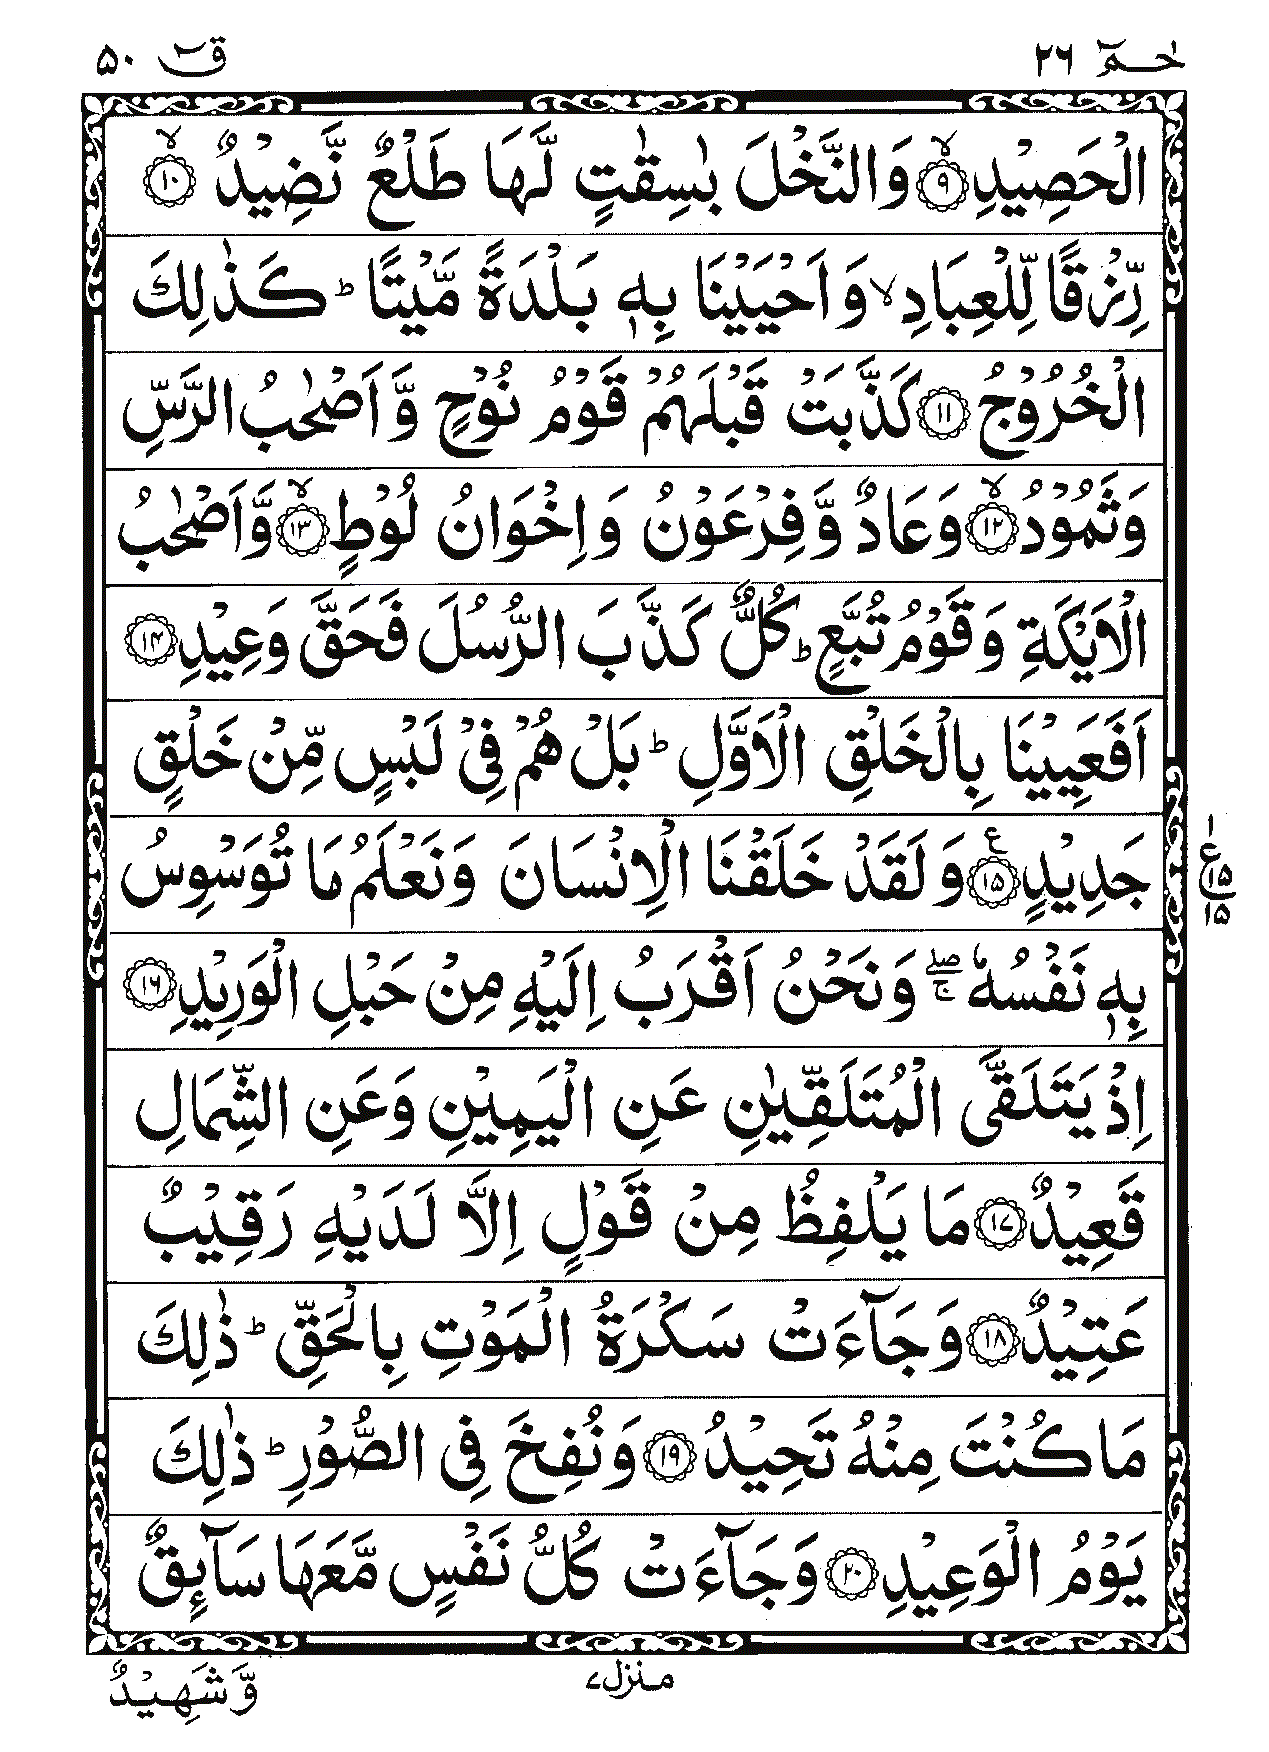 حٰمٓ ٢٦ قٓ ۵۰
الْحَصِيْدِ ۙ‏﴿۹﴾ وَالنَّخْلَ بٰسِقٰتٍ لَّهَا طَلْعٌ نَّضِيْدٌ ۙ‏﴿۱۰﴾
رِّزْقًا لِّلْعِبَادِ ۙ وَاَحْيَيْنَا بِهٖ بَلْدَةً مَّيْتًا ؕ كَذٰلِكَ
الْخُرُوْجُ ﴿۱۱﴾ كَذَّبَتْ قَبْلَهُمْ قَوْمُ نُوْحٍ وَّاَصْحٰبُ الرَّسِّ
وَثَمُوْدُ ۙ‏﴿۱۲﴾ وَعَادٌ وَّفِرْعَوْنُ وَاِخْوَانُ لُوْطٍ ۙ‏﴿۱۳﴾ وَّاَصْحٰبُ
الْاَيْكَةِ وَقَوْمُ تُبَّعٍ ؕ كُلٌّ كَذَّبَ الرُّسُلَ فَحَقَّ وَعِيْدِ ﴿۱۴﴾
اَفَعَيِيْنَا بِالْخَلْقِ الْاَوَّلِ ؕ بَلْ هُمْ فِىْ لَبْسٍ مِّنْ خَلْقٍ
جَدِيْدٍ ﴿۱۵﴾ ع وَلَقَدْ خَلَقْنَا الْاِنْسَانَ وَنَعْلَمُ مَا تُوَسْوِسُ
۱
ع ۱۵
۱۵
بِهٖ نَفْسُهٗ ۖۚ وَنَحْنُ اَقْرَبُ اِلَيْهِ مِنْ حَبْلِ الْوَرِيْدِ ﴿۱۶﴾
اِذْ يَتَلَقَّى الْمُتَلَقِّيٰنِ عَنِ الْيَمِيْنِ وَعَنِ الشِّمَالِ
قَعِيْدٌ ﴿۱۷﴾ مَا يَلْفِظُ مِنْ قَوْلٍ اِلَّا لَدَيْهِ رَقِيْبٌ
عَتِيْدٌ ﴿۱۸﴾ وَجَآءَتْ سَكْرَةُ الْمَوْتِ بِالْحَقِّ ؕ ذٰلِكَ
مَا كُنْتَ مِنْهُ تَحِيْدُ ﴿۱۹﴾ وَنُفِخَ فِى الصُّوْرِ ؕ ذٰلِكَ
يَوْمُ الْوَعِيْدِ ﴿۲۰﴾ وَجَآءَتْ كُلُّ نَفْسٍ مَّعَهَا سَآئِقٌ
منزل ۷
وَّشَهِيْدٌ